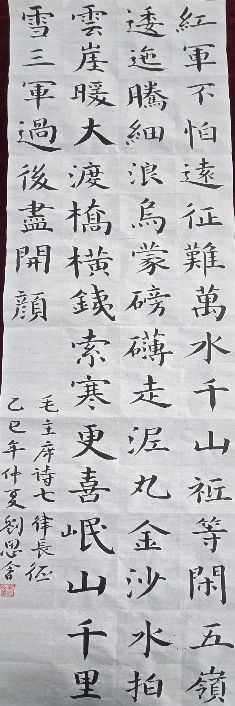 紅軍不怕遠征難萬水千山祗等閑五嶺
逶迤騰細浪烏蒙磅礴走泥丸金沙水拍
雲崖暖大渡橋橫銕索寒更喜岷山千里
雪三軍過後盡開顏
毛主席诗七律長征
乙巳年仲夏劉思